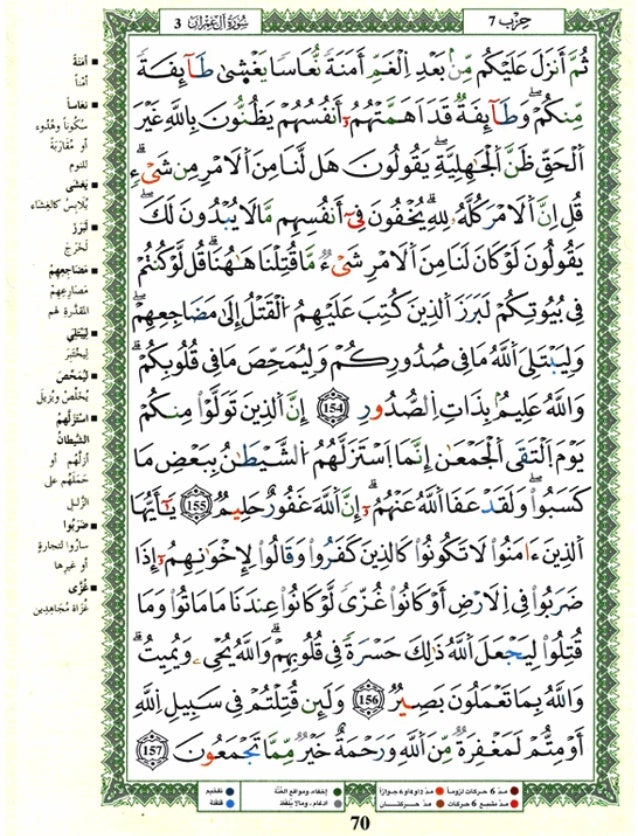 حِزب 7
سُورَةُ آلِ عِمْرَان 3
ثُمَّ أَنزَلَ عَلَيْكُم مِّنۢ بَعْدِ اِلْغَمِّ أَمَنَةٗ نُّعَاسٗا يَغْشٜىٰ طَآئِفَةٗ
مِّنكُمْۖ وَطَآئِفَةٞ قَدَ اَهَمَّتْهُمُۥٓ أَنفُسُهُمْ يَظُنُّونَ بِاللَّهِ غَيْرَ
اَلْحَقِّ ظَنَّ اَلْجَٰهِلِيَّةِۖ يَقُولُونَ هَل لَّنَا مِنَ اَلَامْرِ مِن شَےْءٖۖ
قُلِ اِنَّ اَلَامْرَ كُلَّهُۥ لِلهِۖ يُخْفُونَ فِےٓ أَنفُسِهِم مَّا لَا يُبْدُونَ لَكَۖ
يَقُولُونَ لَوْ كَانَ لَنَا مِنَ اَلَامْرِ شَےْءٞ مَّا قُتِلْنَا هَٰهُنَاۖ قُل لَّوْ كُنتُمْ
فِي بُيُوتِكُمْ لَبَرَزَ اَلذِينَ كُتِبَ عَلَيْهِمُ اَلْقَتْلُ إِلَىٰ مَضَاجِعِهِمْۖ
وَلِيَبْتَلِيَ اَللَّهُ مَا فِي صُدُورِكُمْ وَلِيُمَحِّصَ مَا فِي قُلُوبِكُمْۖ
وَاللَّهُ عَلِيمُۢ بِذَاتِ اِلصُّدُورِ 154 إِنَّ اَلذِينَ تَوَلَّوْاْ مِنكُمْ
يَوْمَ اَلْتَقَى اَلْجَمْعَٰنِ إِنَّمَا اَسْتَزَلَّهُمُ اُلشَّيْطَٰنُ بِبَعْضِ مَا
كَسَبُواْۖ وَلَقَدْ عَفَا اَللَّهُ عَنْهُمُۥٓۖ إِنَّ اَللَّهَ غَفُورٌ حَلِيمٞ 155 يَٰٓأَيُّهَا
اَلذِينَ ءَامَنُواْ لَا تَكُونُواْ كَالذِينَ كَفَرُواْ وَقَالُواْ لِإِخْوَٰنِهِمُۥٓ إِذَا
ضَرَبُواْ فِي اِلَارْضِ أَوْ كَانُواْ غُزّىٗ لَّوْ كَانُواْ عِندَنَا مَا مَاتُواْ وَمَا
قُتِلُواْ لِيَجْعَلَ اَللَّهُ ذَٰلِكَ حَسْرَةٗ فِي قُلُوبِهِمْۖ وَاللَّهُ يُحْيِۦ وَيُمِيتُۖ
وَاللَّهُ بِمَا تَعْمَلُونَ بَصِيرٞ 156 وَلَئِن قُتِلْتُمْ فِي سَبِيلِ اِللَّهِ
أَوْ مِتُّمْ لَمَغْفِرَةٞ مِّنَ اَللَّهِ وَرَحْمَةٌ خَيْرٞ مِّمَّا تَجْمَعُونَ 157
أمَنَةً
أمْناً
نعَاساً
سُكُوناً وهُدُوء
أو مُقَارَبَةً
للنوم
يَغشى
يُلابِسُ كالغِشَاء
لَبَرَزَ
لَخَرَجَ
مَضاجعهِمْ
مَصَارِعِهِمْ
المقدَّرة لهم
لِيَبْتَلي
ليَخْتَبِر
ليُمَحِّصَ
يُخَلِّصَ ويُزيلَ
اسْتَزَلَّهُم
الشيْطانُ
أزَلَّهُم أو
حَمَلَهُم على
الزَّلَلِ
ضَرَبُوا
سارُوا لتجارةٍ
أو غيرها
غُزًّى
غُزَاةً مُجَاهِدين
مدّ 6 حركات لزوماً
مدّ 2 أو 4 أو 6 جوازاً
مدّ مشبع 6 حركات
مدّ حركتان
إخفاء، ومواقع الغُنَّة
ادغام، وما لا يُلفَظ
تفخيم
قلقلة
70